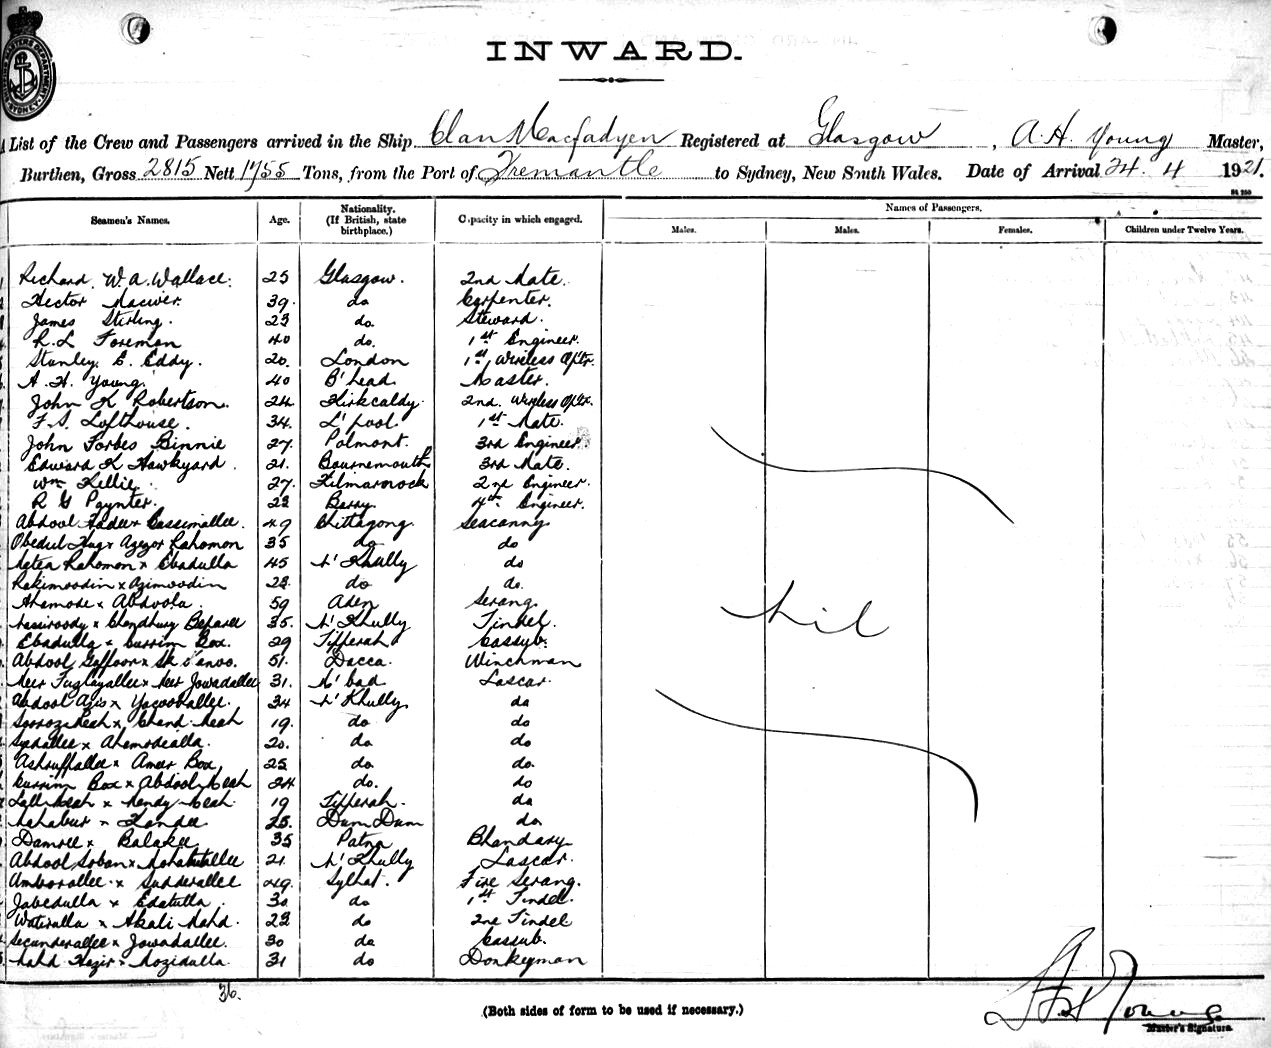 INWARD.
List of the Crew and Passengers arrived in the Ship Clan Macfadyen Registered at Glasgow, A. H. Young Master,
Burthen, Gross 2815 Nett 1755 Tons, from the Port of Fremantle to Sydney, New South Wales. Date of Arrival 24. 4 1921.
Seamen's Names. Age. Nationality. (If British, state birthplace.) Capacity in which engaged. Names of Passengers.
Males. Males. Females. Children under Twelve Years.
Richard W. A. Wallace. 25 Glasgow. 2nd Mate.
Hector Maciver. 39. do Carpenter.
James Stirling. 23 do. Steward.
R. L Foreman 40 do. 1st Engineer.
Stanley E. Eddy. 20. London 1st Wireless Optr.
A. H. Young. 40 B'head. Master.
John K Robertson. 24 Kirkcaldy. 2nd. Wireless Optr.
F. S. Lofthouse. 34. L'pool 1st Mate.
John Forbes Binnie 27. Polmont. 3rd Engineer.
Edward K Hawkyard. 21. Bournemouth 3rd Mate.
Wm Kellie 27. Kilmarnock 2nd Engineer.
R G Paynter. 23 Barry. 4th Engineer.
Abdool Kader x Cassimallee. 49 Chittagong. Seacunny
Obedul Huq x Azezor Rahomon 35 do do
Rahomon x Ebadulla 45 N'Khully do
Rakimoodin x Azimoodin 23. do do.
Ahamode x Abdoola. 59 Aden Serang.
Nassiroody x Chondhury Beparee 35. N'Khully Tindel.
Ebadulla x Currim Box. 29 Tipperah Cassub.
Abdool Gaffoor x Sk 51. Dacca. Winchman
Meer x Meer Jowadallee 31. M'bad Lascar.
Abdool Azis x Yacooballee. 34 N'Khully. do
Meah x Chand Meah 19. do do
Syedallee x Ahamodealla. 20. do do
Ashruffallee x Ameer Box, 25 do do.
Currim Box x Abdool Meah 24 do. do
Lall Meah x Nendy Meah. 19 Tipperah. do
25. Dum Dum do.
Damree x Balakee 35 Patna Bhandary.
Abdool Soban x 21. N'Khully Lascar.
Amborallee x Sudderallee 49. Sylhet. Fire Serang.
Jabedulla x Edatulla. 30 do 1st Tindel.
Watirulla x Akali Mahd. 23 do 2nd Tindel
Secunderallee x Jowadallee. 30 do Cassub.
Mahd Hazir x Mozidulla. 31 do Donkeyman
Nil
36.
(Both sides of form to be used if necessary.)
A H Young
Master's Signature.